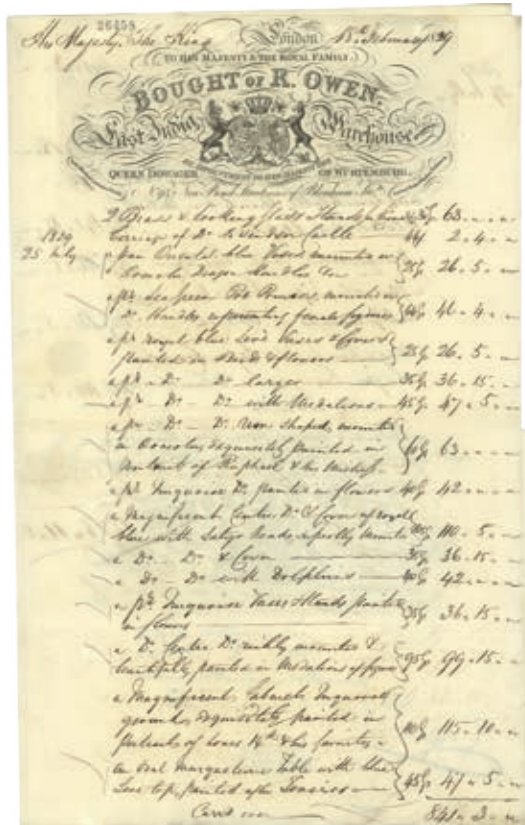 26458
His Majesty The King London 18th February 29
TO HIS MAJESTY & THE ROYAL FAMILY.
BOUGHT OF R. OWEN.
East India Warehouse
QUEEN DOWAGER OF WURTEMBURG.
New Bond Street
2 Glass & Looking Glass Stands 63 - -
Carriage of Do to Windsor Castle 2 . 4 . -
1829
25 July
a pair Orient. blue Vases mounted in
Dragon Handles 25g 26 . 5 . -
a pr Sea Green Pot Pourries, mounted in
Do Handles representing female figures 44g 46 . 4 . -
a pr royal blue Vases & Covers
painted in birds & flowers 25g 26 . 5 . -
a pr - Do - Do larger 35g 36 . 15 . -
a pr - Do - Do with Medallions 45g 47 . 5 . -
a pr - Do - Do Urn shaped, mounted
in exquisitely painted in
of Raphael & his Mistress 60g 63 - -
a pr Turquoise Do painted in flowers 40g 42 - -
a Magnificent Center Do & Cover of royal
blue with Satyr heads, superbly mounted 105g 110 . 5 . -
a Do - Do & Cover 35g 36 . 15 . -
a Do - Do with Dolphins 40g 42 - -
a pr Turquoise Vases & Stands painted
in flowers 35g 36 . 15 . -
a Do Center Do richly mounted &
beautifully painted in Medallions of figures 95g 99 . 15 . -
a Magnificent Cabaret Turquoise
ground, exquisitely painted in
Portraits of Louis 14th & his favorites 110g 115 . 10 . -
an oval marqueterie Table with blue
top, painted after Teniers 45g 47 . 5 . -
Card over 841 . 3 . -